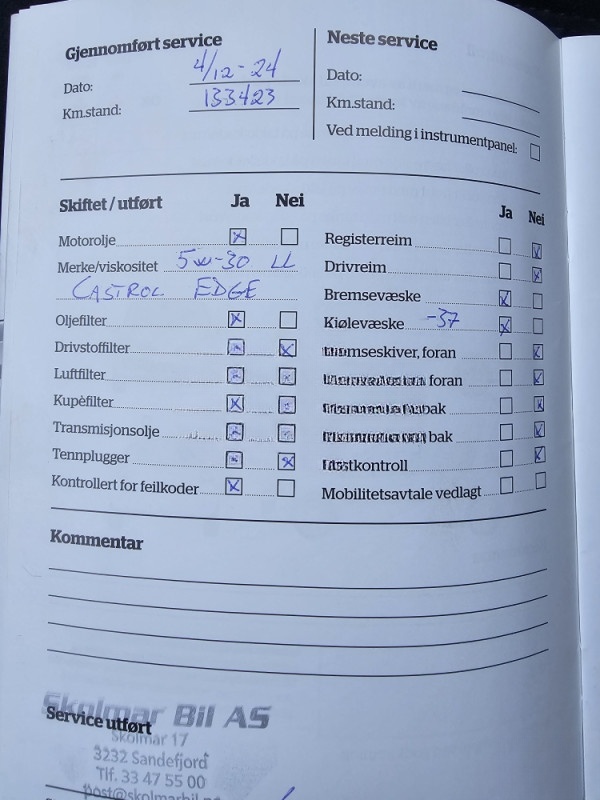 Gjennomført service
Dato: 4/12-24
Km.stand: 133423
Neste service
Dato:
Km.stand:
Ved melding i instrumentpanel:
Skiftet / utført Ja Nei
Motorolje
Merke/viskositet 5W-30 LL
CASTROL EDGE
Oljefilter
Drivstoffilter
Luftfilter
Kupèfilter
Transmisjonsolje
Tennplugger
Kontrollert for feilkoder
Ja Nei
Registerreim
Drivreim
Bremsevæske
Kjølevæske -37
foran
foran
bak
bak
Mobilitetsavtale vedlagt
Kommentar
Skolmar Bil AS
Service utført
Skolmar 17
3232 Sandefjord
Tlf. 33 47 55 00